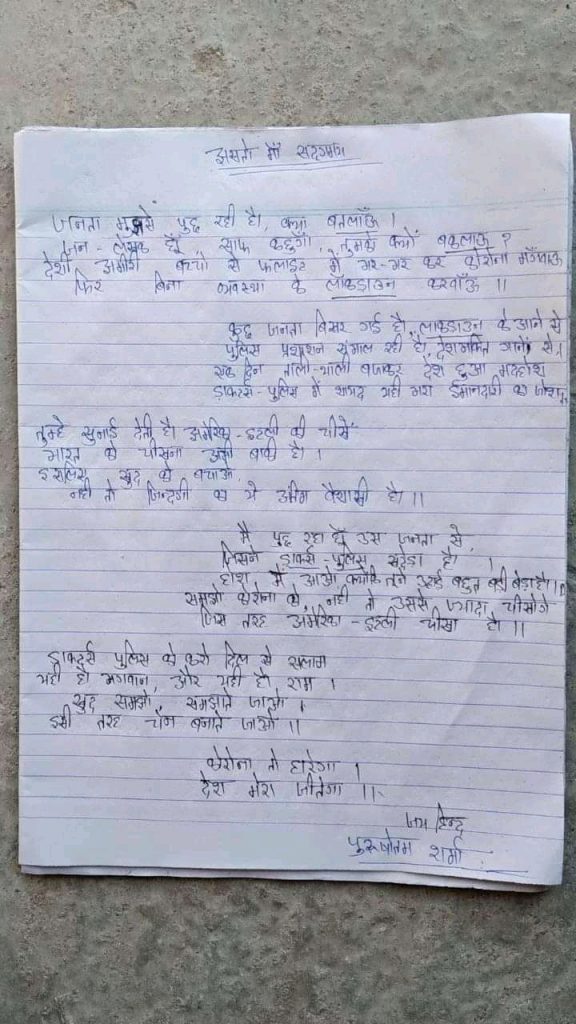 असतो माँ सदगमय
जनता मुझसे पुछ रही है, क्या बतलाऊँ ।
जन - लेखक हूँ, साफ कहूगाँ, तुमको क्यों बकलाऊ ?
देशी अमीरो बच्चो से फलाइट में भर-भर कर कोरोना मँगवाऊ
फिर बिना व्यवस्था के लॉकडाउन करवाँऊ ॥
कुछ जनता बिसर गई है, लाकडाउन के आने से
पुलिस प्रशाशन संभाल रही है, देशभक्ति गानों से ।
एक दिन ताली-थाली बजाकर देश हुआ मदहोश
डाक्टर्स-पुलिस में शायद यही भरा ईमानदारी का जोश
तुम्हे सुनाई देती है। अमेरिका-इटली की चीसें
भारत का चीसना अभी बाकी है ।
इसलिए खुद को बचाओ
नही तो जिन्दगी का ये अंतिम वैशाखी है ।।
मै पुछ रहा हूँ उस जनता से,
जिसने डाक्टर्स-पुलिस खदेड़ा है। ।
होश में आओ क्योंकि बहुत बेड़ा है।
समझो कोरोना को, नही तो उससे ज्यादा चीसोगे
जिस तरह अमेरिका-इटली चीसा है ।।
डाक्टर्स पुलिस को करो दिल से सलाम
यही है भगवान, और यही है राम ।
खुद समझो, समझाते जाओ ।
इसी तरह चैन बनाते जाओ ।।
कोरोना तो हारेगा ।
देश मेरा जीतेगा ।।
जय हिन्द
पुरूषोतम शर्मा